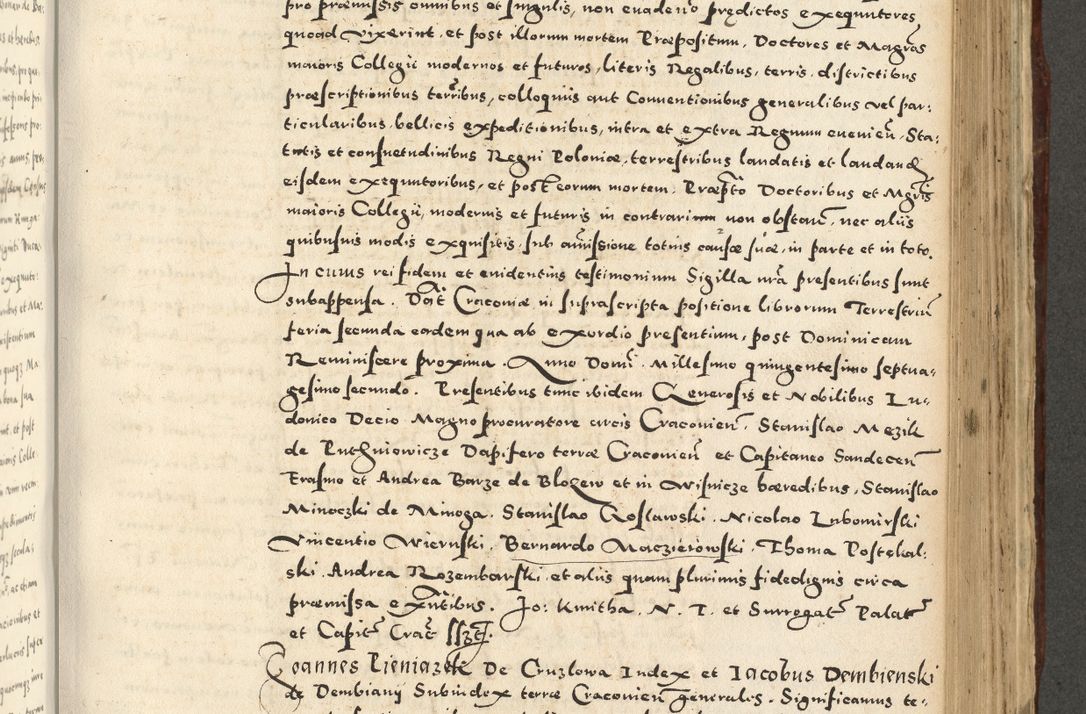 pro præmissis omnibus et singulis, non evadend̃o prędictos exequutores,
quoad vixerint, et post illorum mortem Præpositum, Doctores et Mag̃ros
maioris Collegii modernos et futuros, literis Regalibus, terris, districtibus
præscriptionibus terr̃ibus, colloquiis aut Conventionibus generalibus vel par:
ticularibus, bellicis expeditionibus, intra et extra Regnum evenien̄, Sta:
tutis et consuetudinibus Regni Poloniæ, terrestribus laudatis et laudand̃
eisdem exequutoribus, et post eorum mortem, Præp̃to Doctoribus et Mgr̃is
maioris Collegii, modernis et futuris in contrarium non obstan̄, nec aliis
quibusvis modis exquisitis, sub amissione totius causæ suæ, in parte et in toto.
In cuius rei fidem et evidentius testimonium Sigilla nr̃a presentibus sunt
subappensa. Dat̃ Craconiæ in suprascripta positione librorum Terrestriũ
feria secunda eadem qua ab exordio presentium, post Dominicam
Reminiscere proxima. Anno Domĩ Millesimo quingentesimo septua=
gesimo secundo. Presentibus tunc ibidem Generosis et Nobilibus Lu=
dovico Decio Magno procuratore arcis Craconien̄, Stanislao Mężik
de Ruthniowicze Dapifero terræ Craconien̄ et Capitaneo Sandecen̄
Erasmo et Andrea Barze de Blozew et in Wisnicze hæredibus, Stanislao
Minoczki de Minoga, Stanislao Koslawski, Nicolao Lubomirski
Vincentio Wiernski, Bernardo Maczieiowski, Thoma Postekal:
ski, Andrea Rozembarski, et aliis quam plurimis fidedignis circa
præmissa exñtibus. Jo: Kmitha, N. T. et Surrogat̃ Palat̃
et Capit̃ Crac̃ sszt.
Joannes Pieniazek De Cruzlowa Iudex et Iacobus Dembienski
de Dembiany Subiudex terræ Craconien̄ generales. Significamus te=